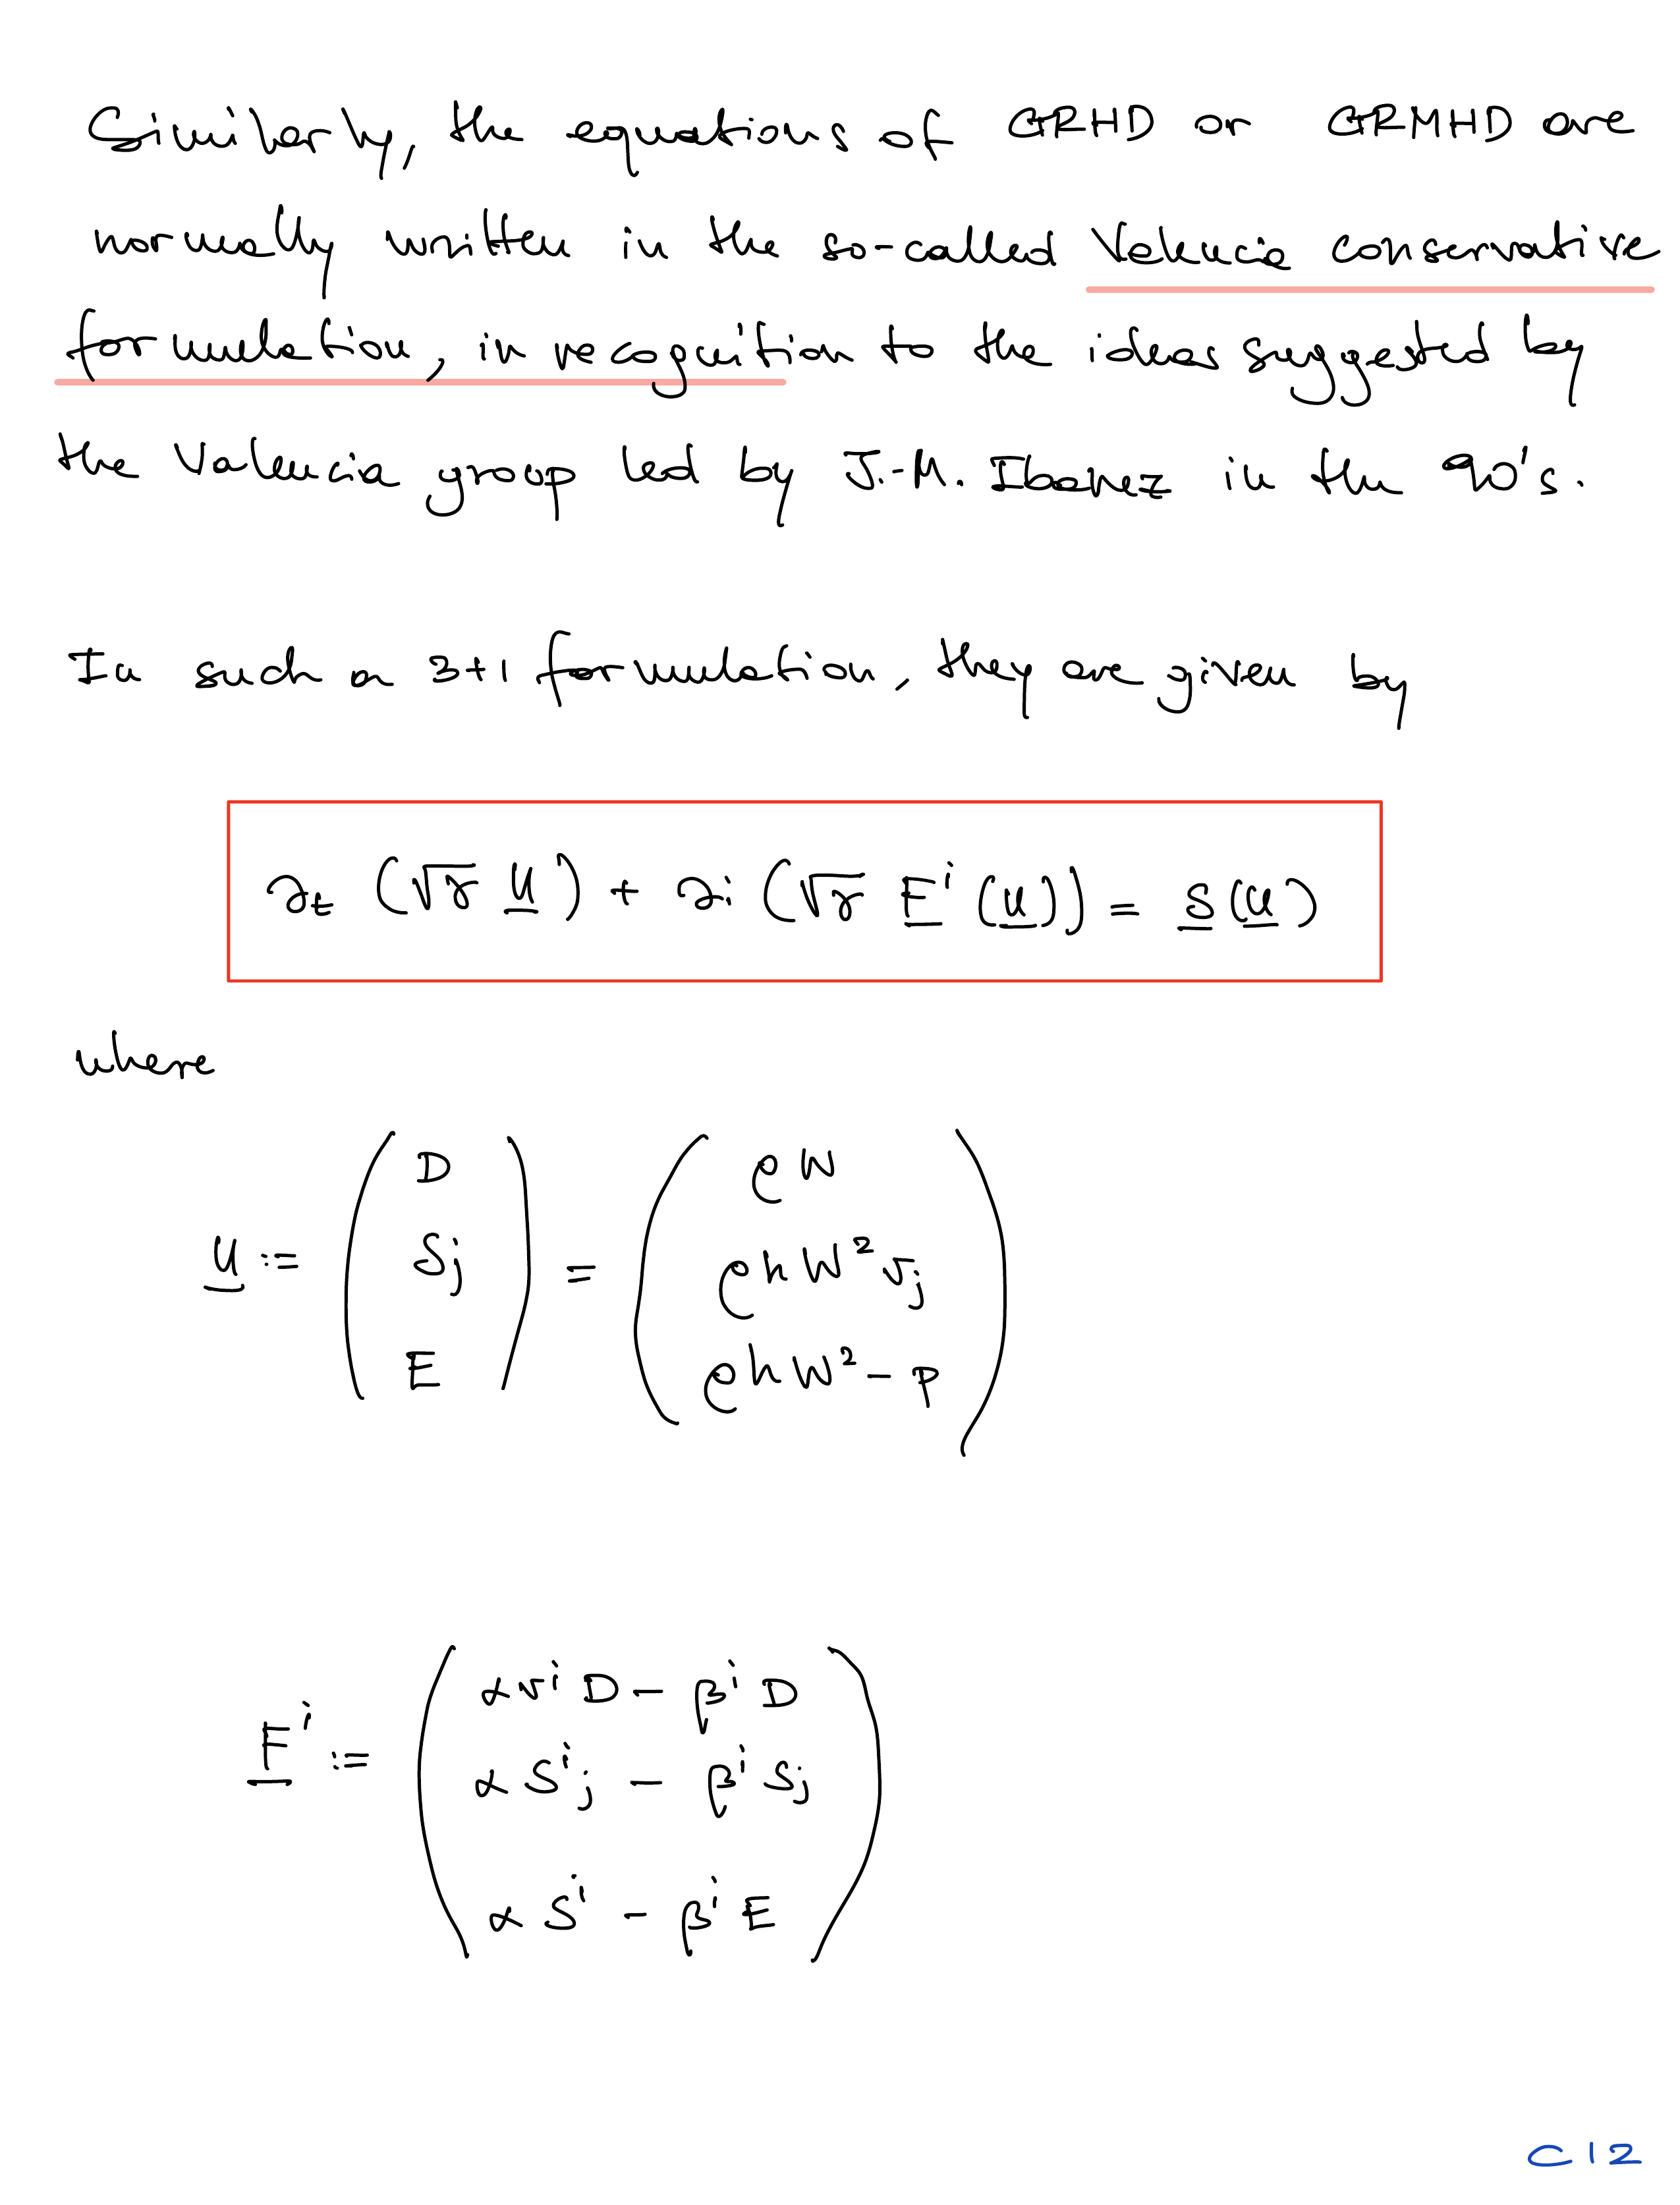 Similarly, the equations of GRHD or GRMHD are
normally written in the so-called Valencia conservative
formulation, in recognition to the ideas suggested by
the Valencia group led by J.-M. Ibanez in the 90's.
In such a 3+1 formulation, they are given by
∂t (√γ U) + ∂i (√γ F^i (U)) = S(U)
where
U := ( D   S_j   E ) = ( ρW   ρhW² v_j   ρhW² - p )
F^i := ( αv^i D - β^i D   αS^i_j - β^i S_j   αS^i - β^i E )
C12